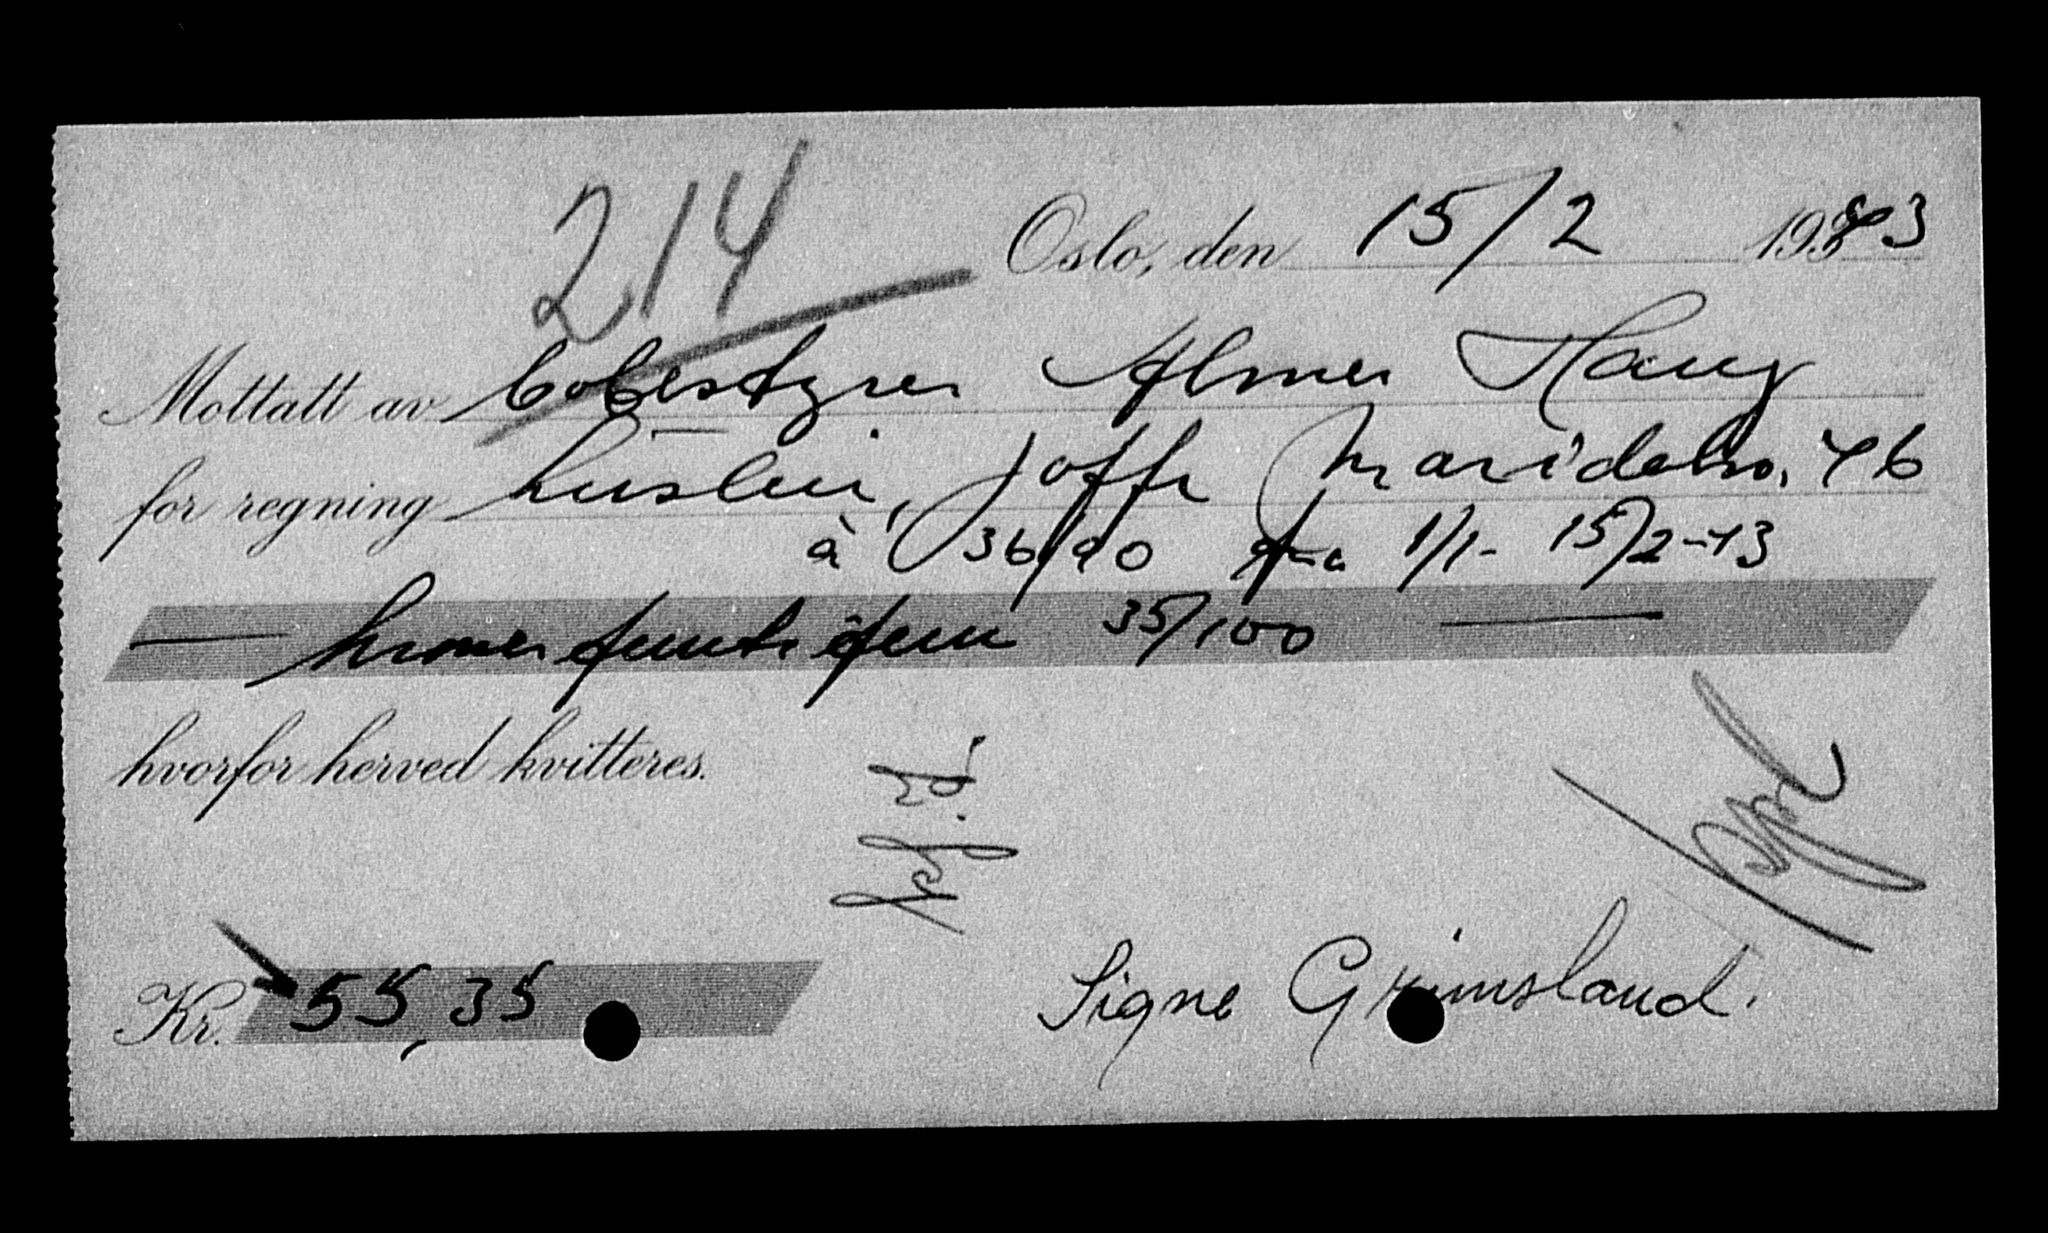 214
Oslo, den 15/2 1943
Mottatt av bobestyrer Almer Haug
for regning husleie, Joffe Maridalsv. 46
à 36/90 fra 1/1 - 15/2-43
— kroner femtifem 35/100 —
hvorfor herved kvitteres.
Kr. 55,35
Signe Grimsland.